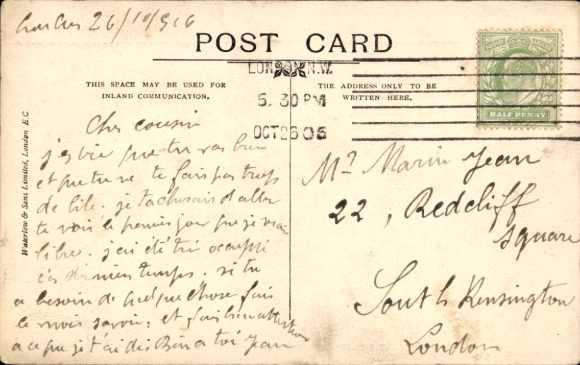 26/10/906
POST CARD
THIS SPACE MAY BE USED FOR
INLAND COMMUNICATION.
THE ADDRESS ONLY TO BE
WRITTEN HERE.
LONDON. N.W.
5. 30 PM
OCT 26 06
HALF PENNY
Waterlow & Sons Limited, London E.C.
Cher cousin
que tu vas bien
et que tu ne te fais pas trop
de bile. je tacherais d'aller
te voir le premier jour que je serai
libre. j'ai été très occuppé
ces derniers temps. si tu
a besoin de quelque chose fais
le mois savoir, et fais bien attention
a ce que je t'ai dis Bien a toi Jean
Mr Marin Jean
22, Redcliff
Square
South Kensington
London